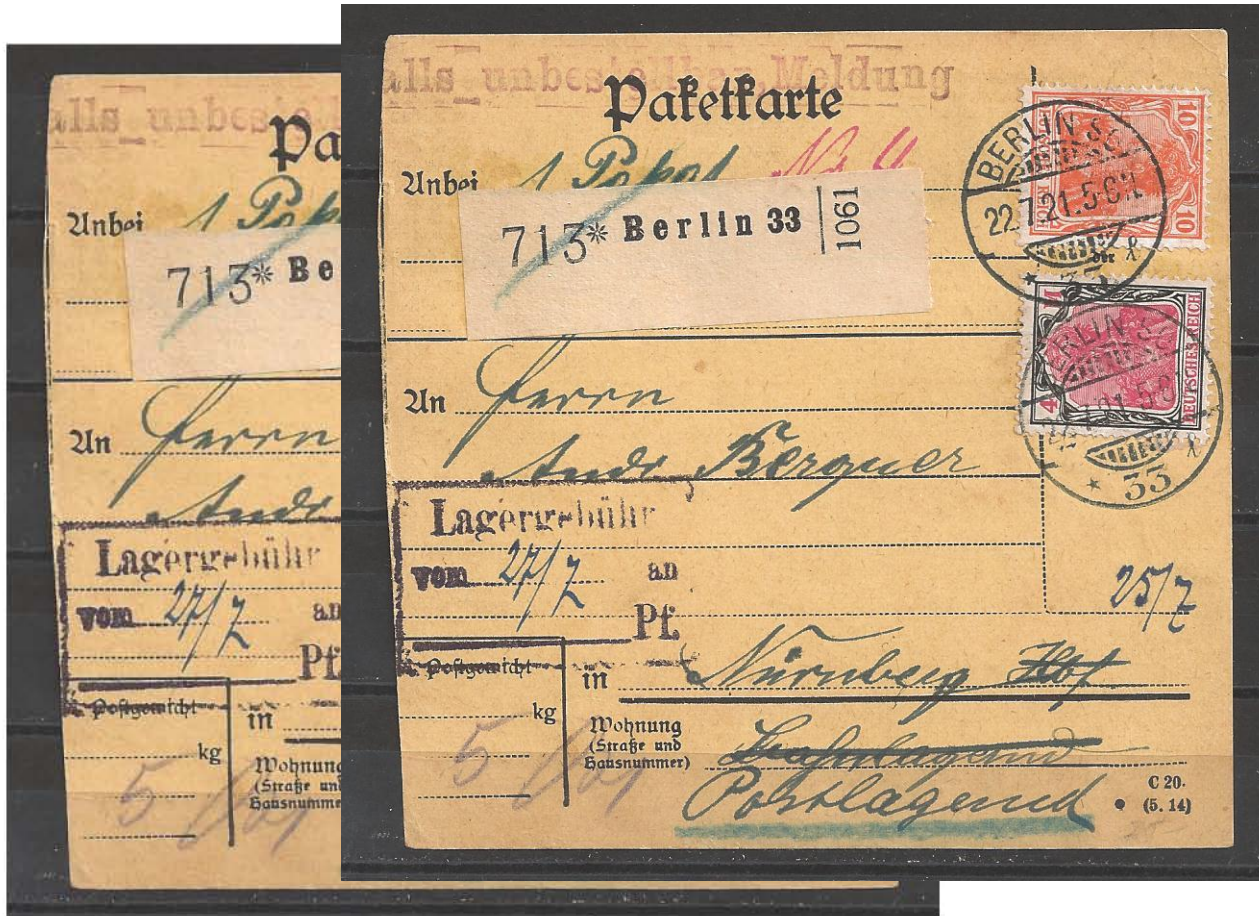 alls unbestellbar, Meldung
Paketkarte
Anbei 1 Paket No 4
713* Berlin 33 1061
BERLIN SO
22.7.21. 5-6 N.
* 33
10 10
DEUTSCHES REICH
BERLIN SO
22.7.21. 5-6
* 33
4 M
An Herrn
Andr Bergner
Lagergebühr
vom 27/7 an
Pf.
25/7
Postgewicht
kg
5
in Nürnberg Hbf
Wohnung
(Straße und
Hausnummer)
Bahnlagernd
Postlagernd
C 20.
(5. 14)
alls unbestell
Pa
Anbei 1 Pake
713* Be
An Herrn
Andr
Lagergebühr
vom 27/7 an
Pf.
Postgewicht
kg
5
in
Wohnung
(Straße und
Hausnummer